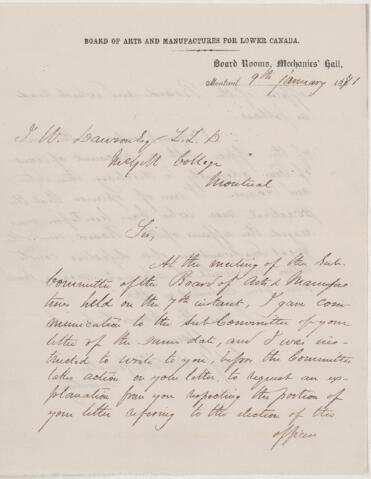 BOARD OF ARTS AND MANUFACTURES FOR LOWER CANADA.
Board Rooms, Mechanics' Hall,
Montreal 9th January 1871
J. W. Dawson Esq L.L.D
McGill College
Montreal
Sir,
At the meeting of the Sub-
Committee of the Board of Arts & Manufac
tures held on the 7th instant, I gave com-
munication to the Sub Committee of your
letter of the same date, and I was ins-
tructed to write to you, before the Committee
takes action on your letter, to request an ex-
planation from you respecting the portion of
your letter referring to the election of the
officers